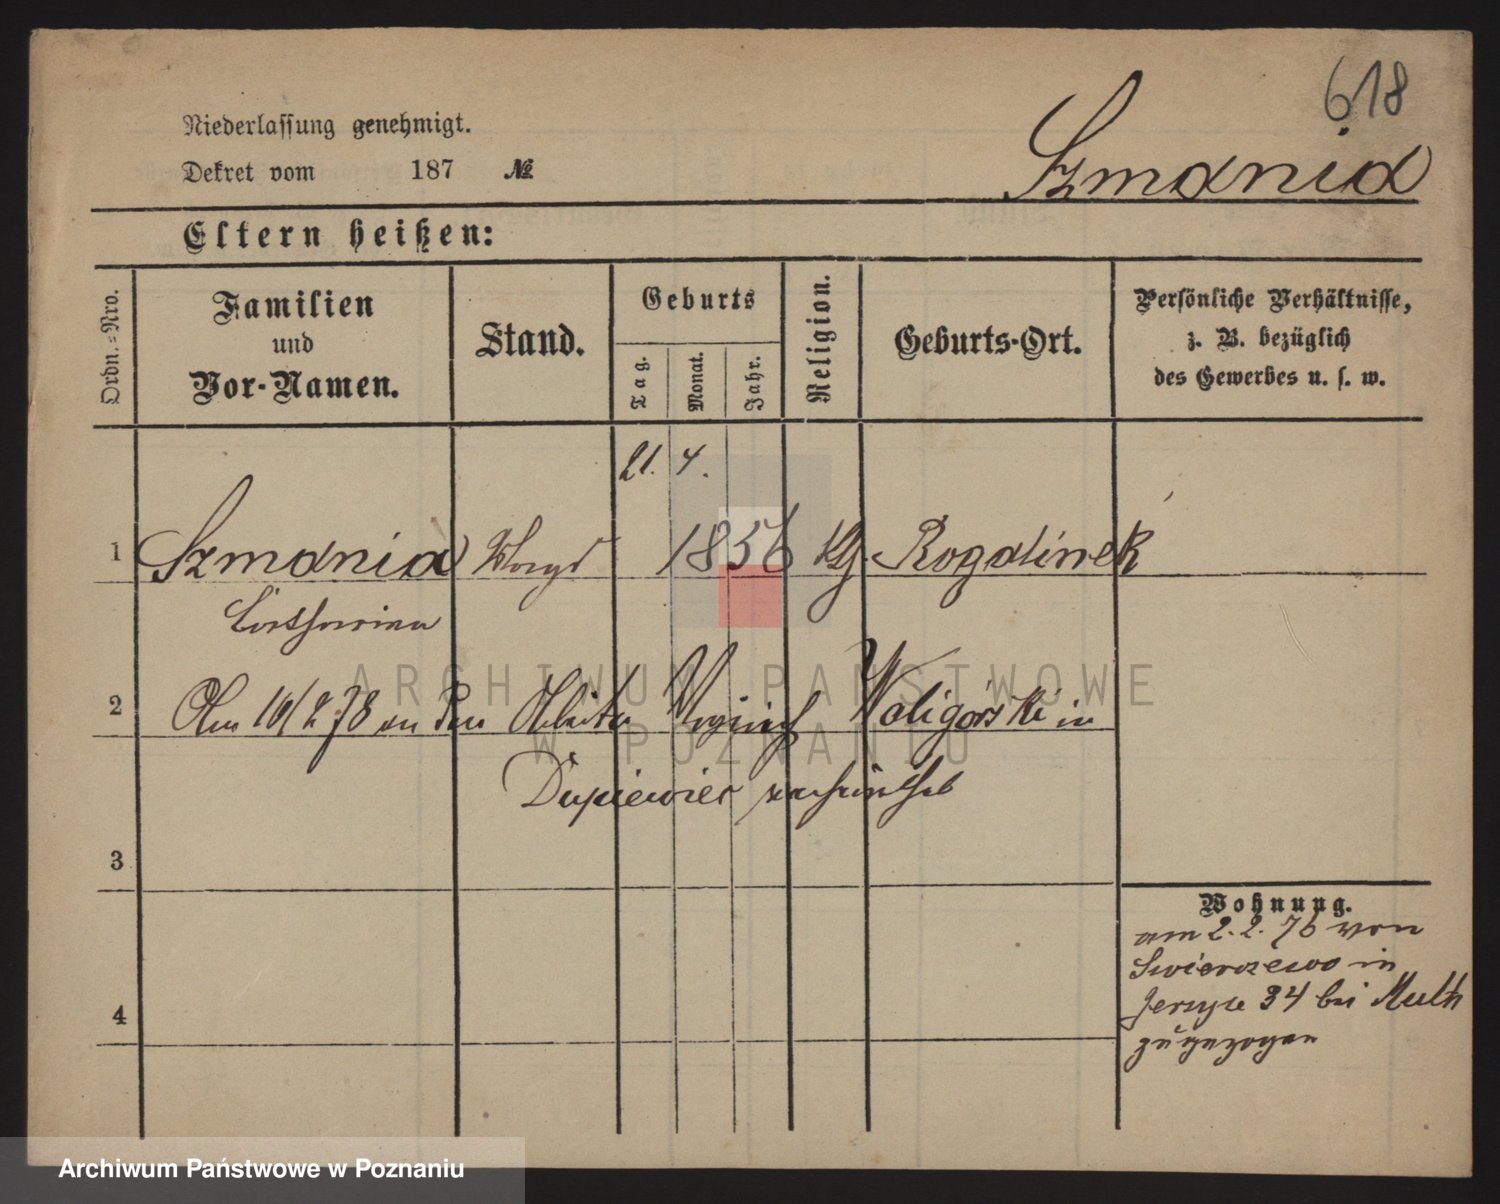 618
Niederlassung genehmigt.
Dekret vom 187 №
Szmania
Eltern heißen:
Ordn.=Nro.
Familien
und
Vor-Namen.
Stand.
Geburts
Tag.
Monat.
Jahr.
Religion.
Geburts-Ort.
Persönliche Verhältnisse,
z. B. bezüglich
des Gewerbes u. s. w.
21. 4.
1 Szmania 1856 Rogalinek
Catharina
2 Am 16/2 78 an den Arbeiter Woligórski in
Dupiewiec verheirathet
3
4
Wohnung.
am 2. 2. 76 von
Swierczewo in
Jerzyce 34 bei Muth
zugezogen
ARCHIWUM PAŃSTWOWE
W POZNANIU
Archiwum Państwowe w Poznaniu